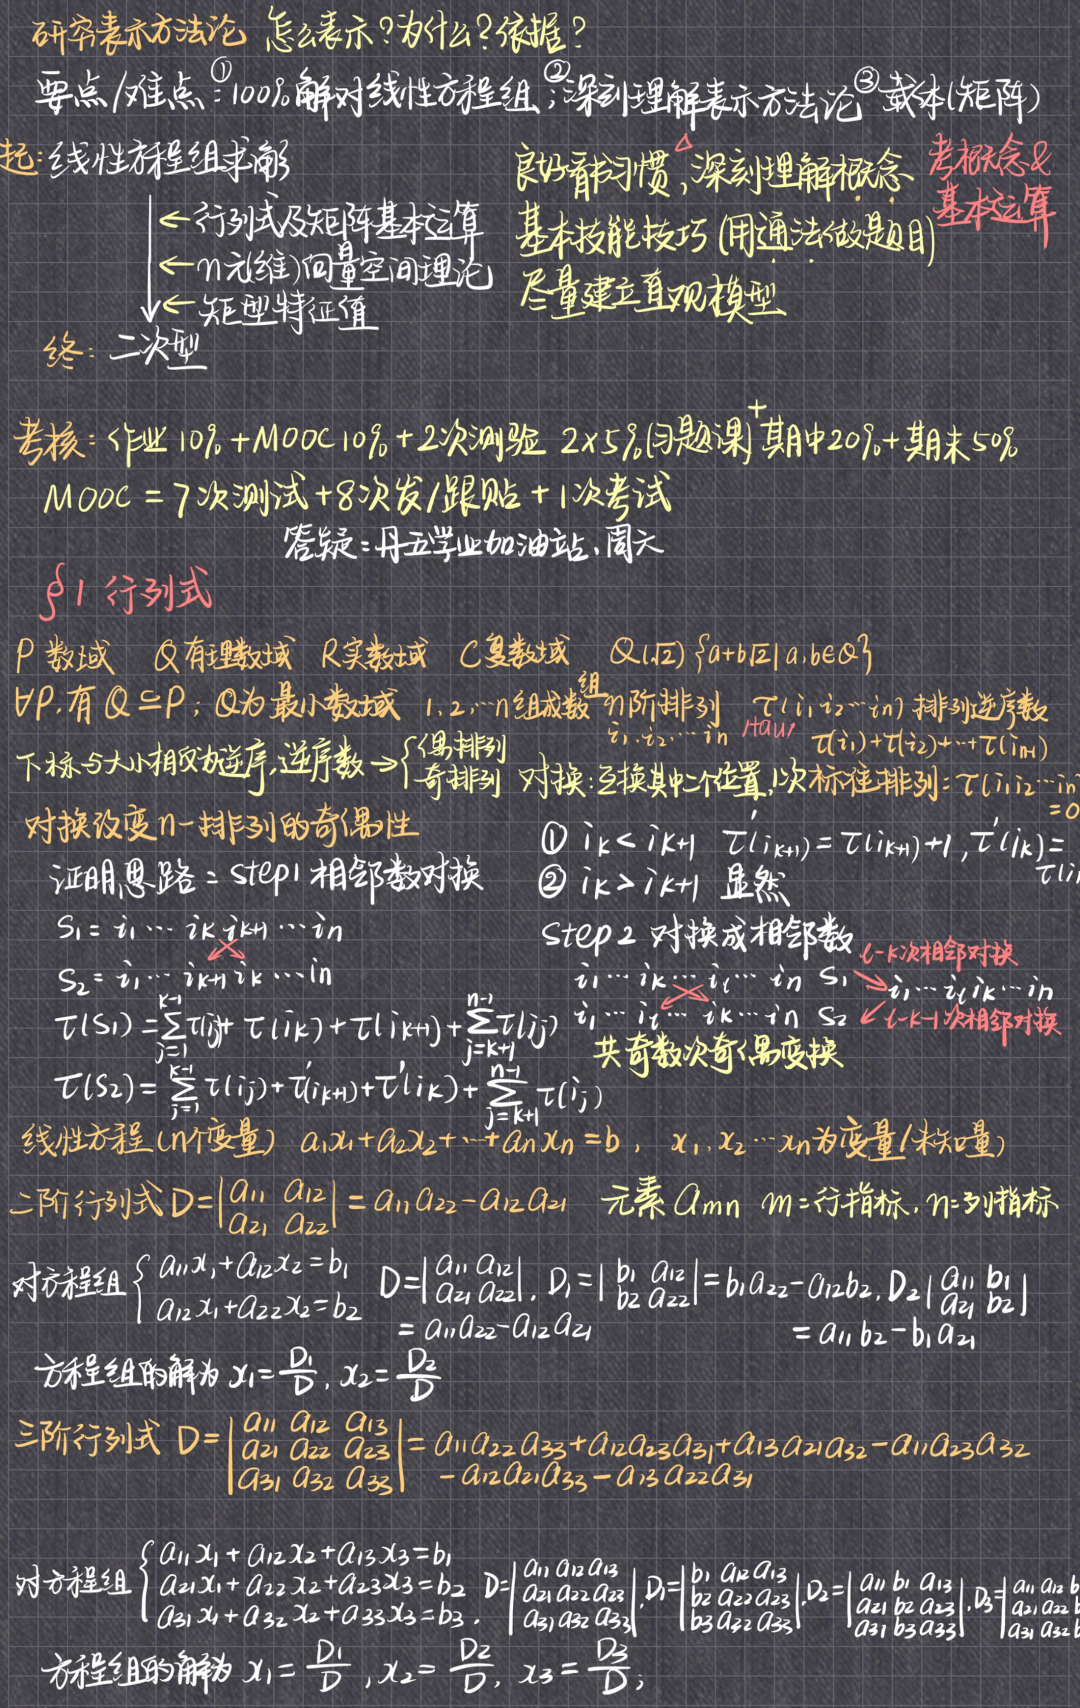 研究表示方法论 怎么表示?为什么?依据?
要点/难点:①100%解对线性方程组;②深刻理解表示方法论③载体(矩阵)
起:线性方程组求解
←行列式及矩阵基本运算
←n元(维)向量空间理论
←矩型特征值
终:二次型
良好看书习惯,深刻理解概念
基本技能技巧(用通法做题目)
尽量建立直观模型
考概念&
基本运算
考核:作业10%+MOOC10%+2次测验 2×5%(习题课)+期中20%+期末50%
MOOC=7次测试+8次发/跟贴+1次考试
答疑:丹五学业加油站、周六
§1 行列式
P数域 Q有理数域 R实数域 C复数域 Q(√2){a+b√2|a,b∈Q}
∀P.有Q⊆P;Q为最小数域 1,2,…n组成数组 n阶排列 τ(i₁i₂…in)排列逆序数
i₁,i₂,…in τ(i₁)+τ(i₂)+…+τ(in-1)
下标与大小相反为逆序,逆序数→{偶排列 奇排列 对换:互换其中二个位置,1次 标准排列:τ(i₁i₂…in
=0
对换改变n-排列的奇偶性
证明思路:step1 相邻数对换
S₁=i₁…ik ik+1…in
S₂=i₁…ik+1 ik…in
τ(S₁)=∑_{j=1}^{k-1}τ(ij)+τ(ik)+τ(ik+1)+∑_{j=k+1}^{n-1}τ(ij)
τ(S₂)=∑_{j=1}^{k-1}τ(ij)+τ'(ik+1)+τ'(ik)+∑_{j=k+1}^{n-1}τ(ij)
① ik<ik+1 τ'(ik+1)=τ(ik+1)+1,τ'(ik)=
τ(i
② ik>ik+1 显然
step2 对换成相邻数
i₁…ik…il…in S₁ l-k次相邻对换
i₁…il ik…in
i₁…il…ik…in S₂ l-k-1次相邻对换
共奇数次奇偶变换
线性方程(n个变量) a₁x₁+a₂x₂+…+anxn=b, x₁,x₂…xn为变量/未知量)
二阶行列式D=|a₁₁ a₁₂; a₂₁ a₂₂|=a₁₁a₂₂-a₁₂a₂₁ 元素amn m:行指标,n:列指标
对方程组{a₁₁x₁+a₁₂x₂=b₁ a₁₂x₁+a₂₂x₂=b₂ D=|a₁₁ a₁₂; a₂₁ a₂₂|, D₁=|b₁ a₁₂; b₂ a₂₂|=b₁a₂₂-a₁₂b₂, D₂|a₁₁ b₁; a₂₁ b₂|
=a₁₁a₂₂-a₁₂a₂₁ =a₁₁b₂-b₁a₂₁
方程组的解为x₁=D₁/D, x₂=D₂/D
三阶行列式 D=|a₁₁ a₁₂ a₁₃; a₂₁ a₂₂ a₂₃; a₃₁ a₃₂ a₃₃|=a₁₁a₂₂a₃₃+a₁₂a₂₃a₃₁+a₁₃a₂₁a₃₂-a₁₁a₂₃a₃₂
-a₁₂a₂₁a₃₃-a₁₃a₂₂a₃₁
对方程组{a₁₁x₁+a₁₂x₂+a₁₃x₃=b₁ a₂₁x₁+a₂₂x₂+a₂₃x₃=b₂ a₃₁x₁+a₃₂x₂+a₃₃x₃=b₃. D=|a₁₁ a₁₂ a₁₃; a₂₁ a₂₂ a₂₃; a₃₁ a₃₂ a₃₃|, D₁=|b₁ a₁₂ a₁₃; b₂ a₂₂ a₂₃; b₃ a₃₂ a₃₃|, D₂=|a₁₁ b₁ a₁₃; a₂₁ b₂ a₂₃; a₃₁ b₃ a₃₃|, D₃=|a₁₁ a₁₂ b; a₂₁ a₂₂ b; a₃₁ a₃₂ b
方程组的解为 x₁=D₁/D, x₂=D₂/D, x₃=D₃/D;